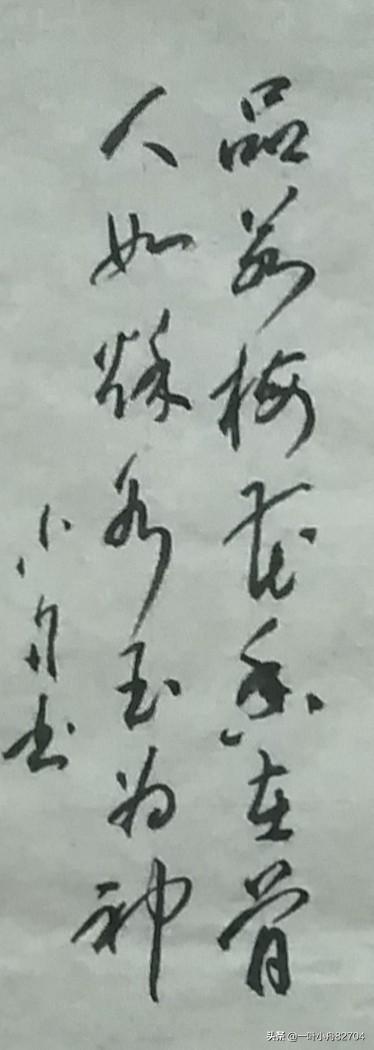 品若梅花香在骨
人如秋水玉为神
小舟书
头条 @一叶小舟82704